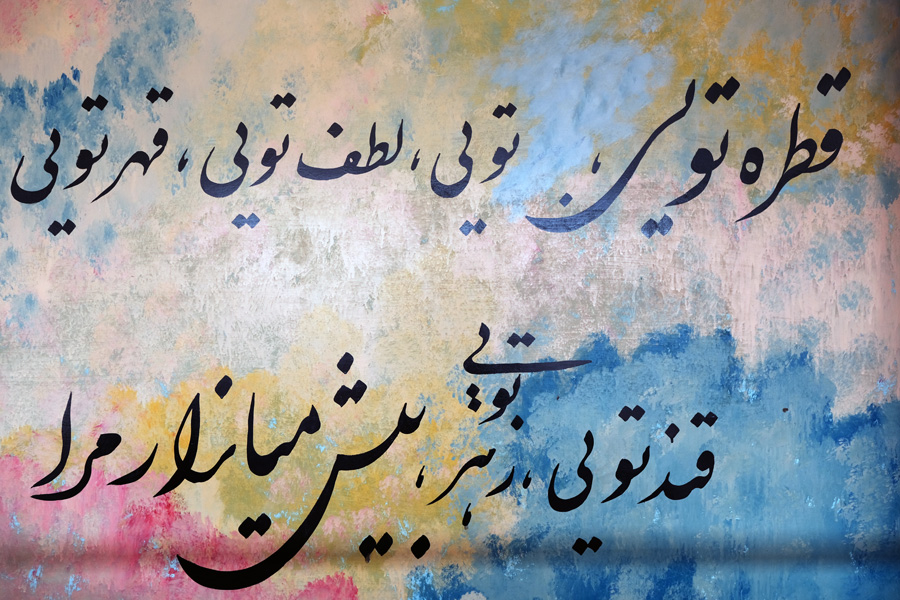 قطره تویی ، تویی ، لطف تویی ، قهر تویی
قند تویی ، زهر تویی ، بیش میازار مرا